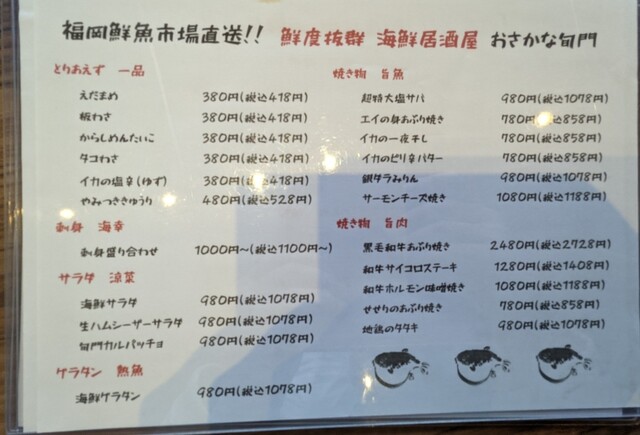 福岡鮮魚市場直送!! 鮮度抜群 海鮮居酒屋 おさかな旬門
とりあえず 一品
えだまめ 380円(税込418円)
板わさ 380円(税込418円)
からしめんたいこ 380円(税込418円)
タコわさ 380円(税込418円)
イカの塩辛(ゆず) 380円(税込418円)
やみつききゅうり 480円(税込528円)
刺身 海幸
刺身盛り合わせ 1000円~(税込1100円~)
サラダ 涼菜
海鮮サラダ 980円(税込1078円)
生ハムシーザーサラダ 980円(税込1078円)
旬門カルパッチョ 980円(税込1078円)
グラタン 熱魚
海鮮グラタン 980円(税込1078円)
焼き物 旨魚
超特大塩サバ 980円(税込1078円)
エイの身あぶり焼き 780円(税込858円)
イカの一夜干し 780円(税込858円)
イカのピリ辛バター 780円(税込858円)
銀ダラみりん 980円(税込1078円)
サーモンチーズ焼き 1080円(税込1188円)
焼き物 旨肉
黒毛和牛あぶり焼き 2480円(税込2728円)
和牛サイコロステーキ 1280円(税込1408円)
和牛ホルモン味噌焼き 1080円(税込1188円)
せせりのあぶり焼き 780円(税込858円)
地鶏のタタキ 980円(税込1078円)